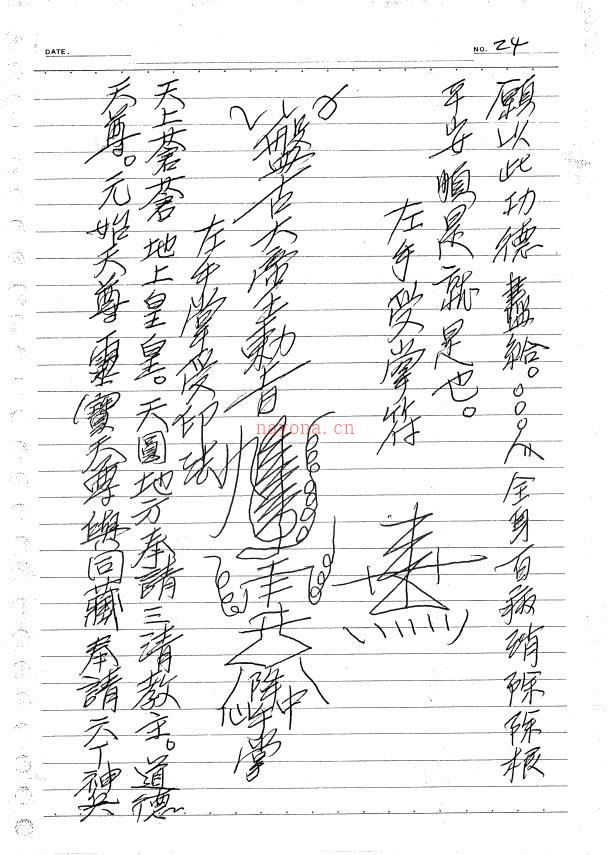 DATE.
NO. 24
願以此功德盡給。○○○人全身百病消除除根
平安順是就是也。
左手受掌符
盤古大帝主勅旨
降中掌
左手掌受印法
天上蒼蒼地上皇皇。天圓地方奉請三清教主。道德
天尊。元始天尊靈寶天尊與同藏奉請六丁神
nayona.cn